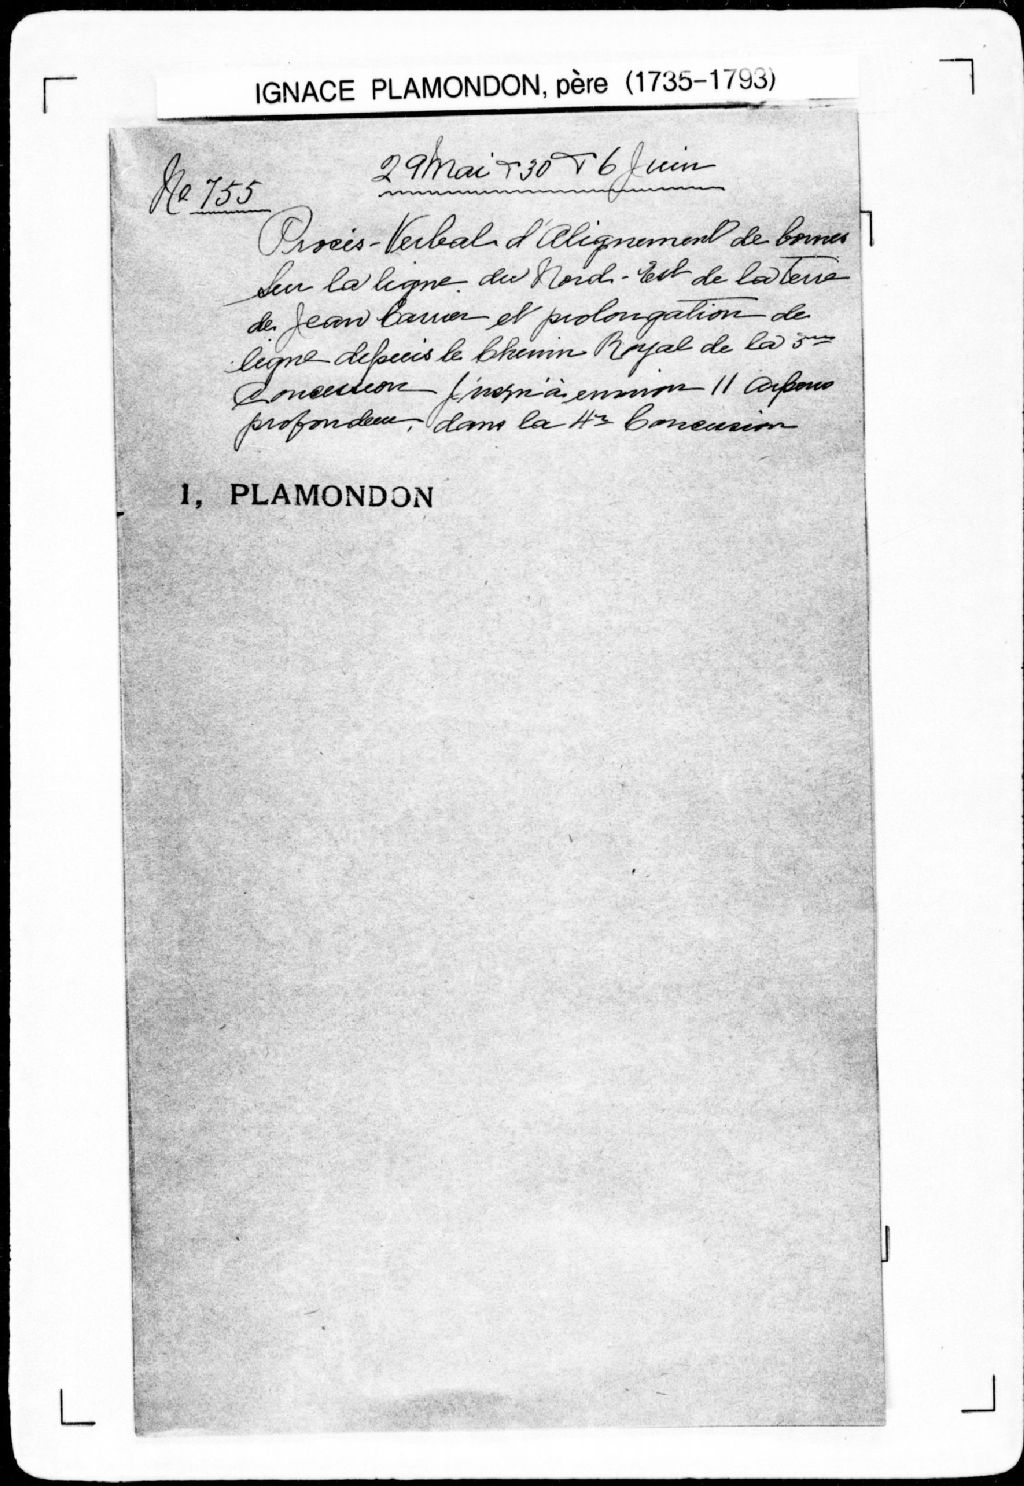 IGNACE PLAMONDON, père (1735-1793)
29 Mai & 30 & 6 Juin
No 755
Procès-Verbal d'Alignement de bornes
Sur la ligne du Nord-Est de la terre
de Jean Carrier et prolongation de
ligne depuis le Chemin Royal de la 3me
Concession jusqu'à environ 11 arpens
profondeur, dans la 4e Concession
I, PLAMONDON